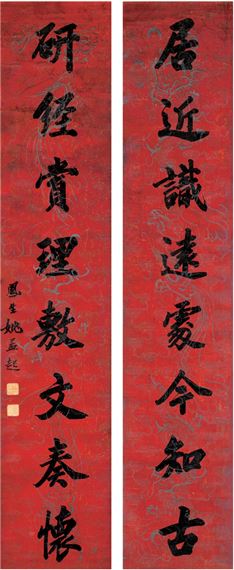 居近識遠處今知古
研經賞理敷文奏懷
鳳生姚孟起